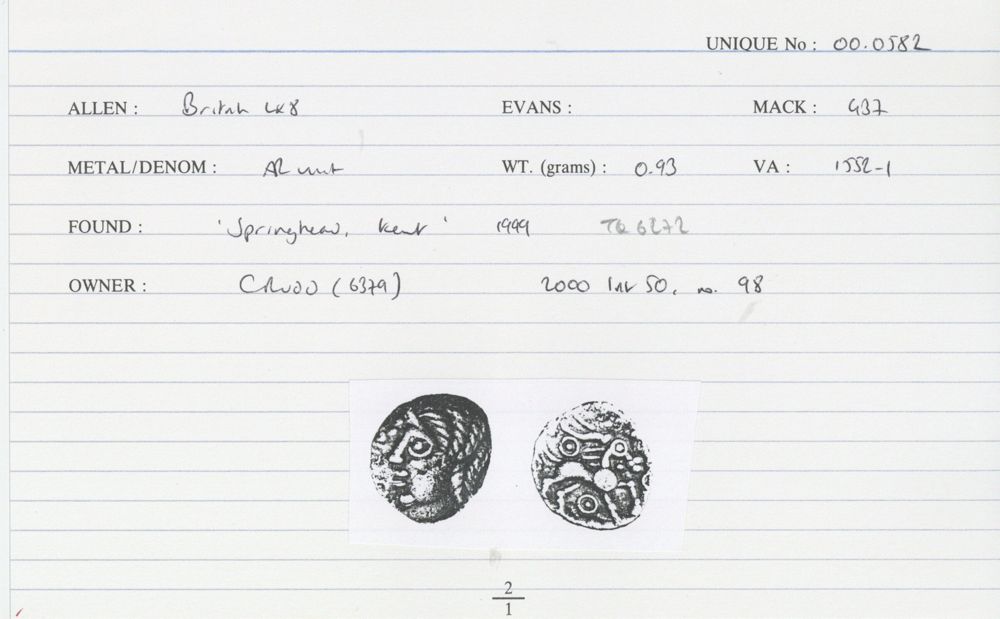 UNIQUE No : 00.0582
ALLEN : British LX8 EVANS : MACK : 437
METAL/DENOM : AR unit WT. (grams) : 0.93 VA : 1552-1
FOUND : 'Springhead, Kent' 1999 TQ 6272
OWNER : CR (6379) 2000 List 50, no. 98
2
1